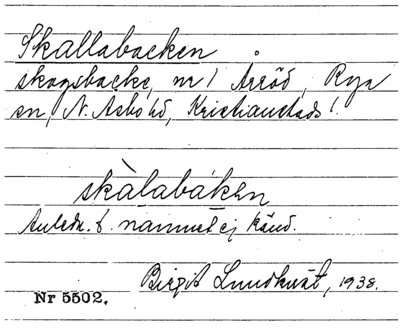 Skallabacken
skogsbacke, nr 1 Arröd, Rya
sn, N. Åsbo hd, Kristianstads l.
skàlabákən
Anledn. t. namnet ej känd.
Birgit Lundkvist, 1938.
Nr 5502.